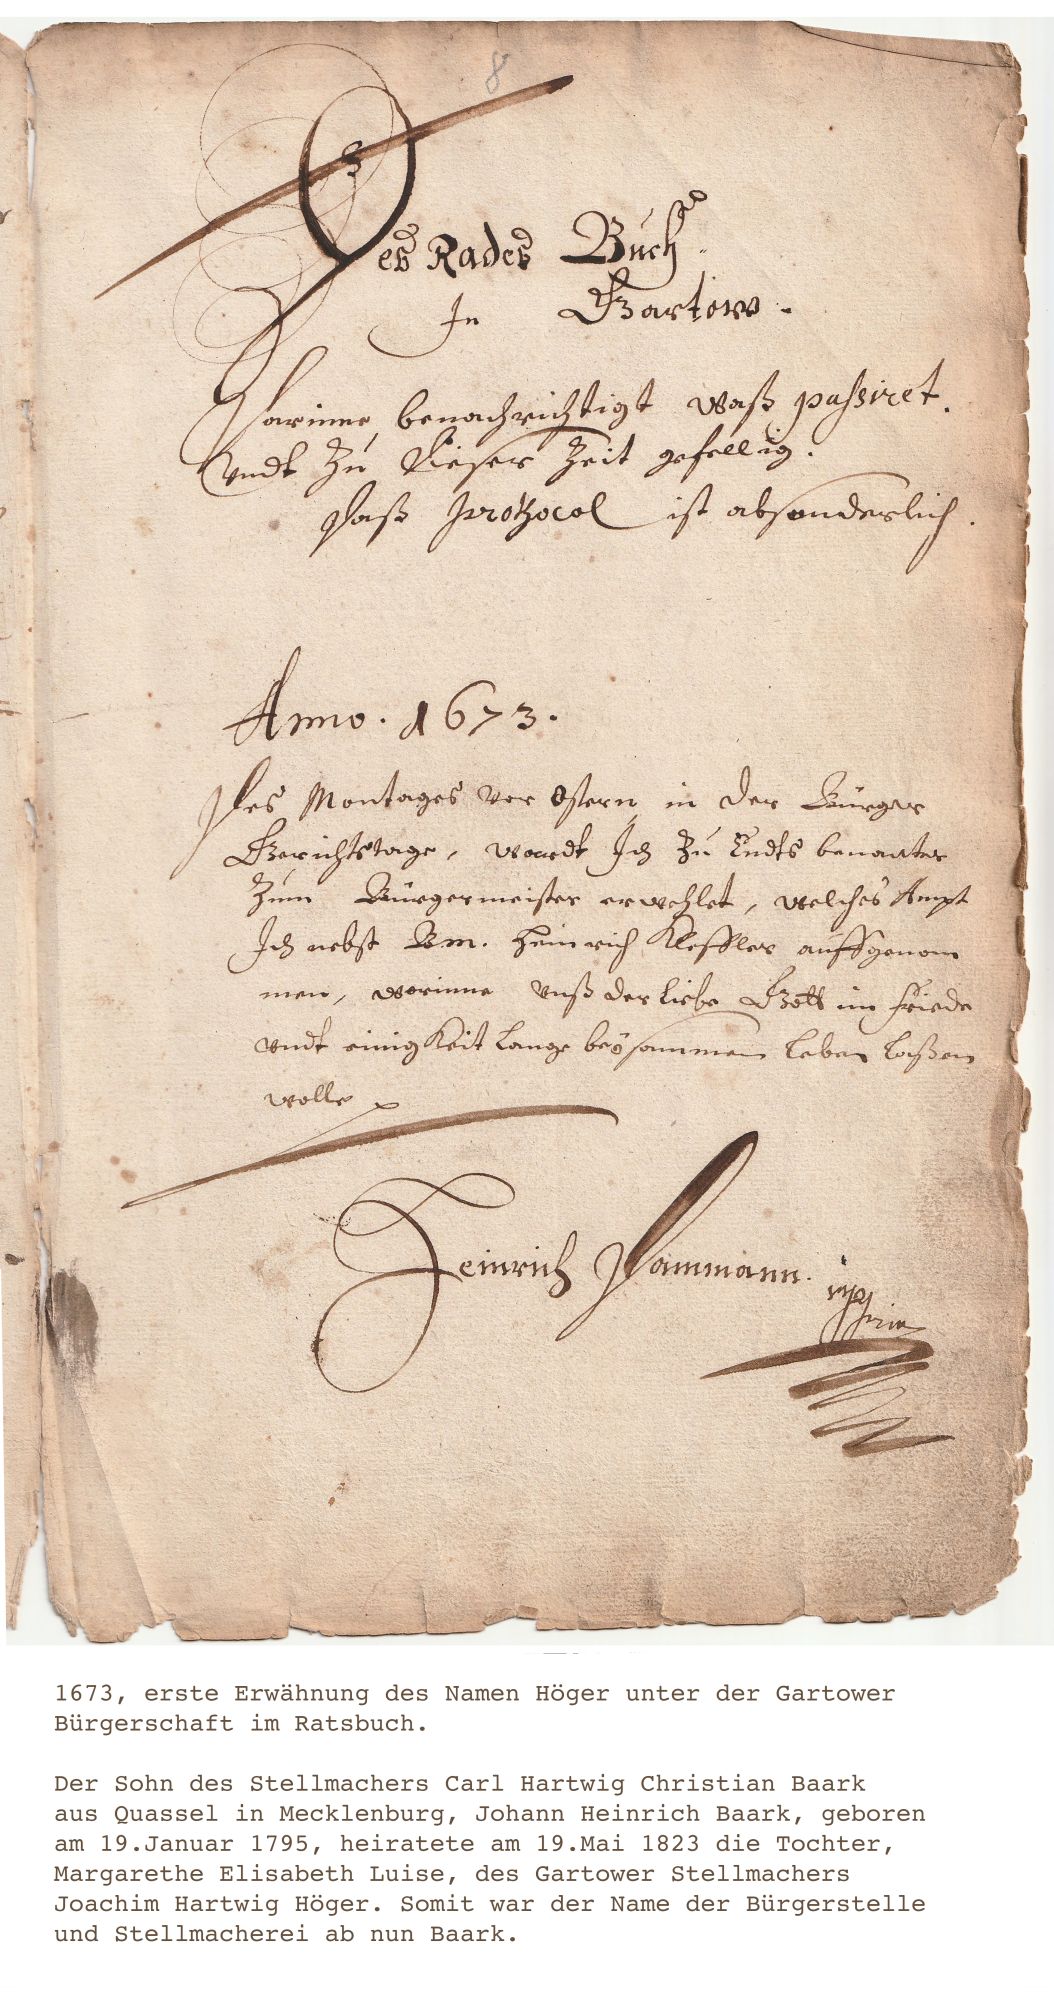 8
Des Rades Buch.
In Gartow.
Darinne benachrichtigt waß passiret.
Undt Zu dieser Zeit gefellig.
Daß Prothocol ist absonderlich.
Anno. 1673.
Des Montages vor Ostern, in der Bürger
Gerichtstage, wardt Ich Zu Endts benanter
Zum Bürgermeister erwehlet, welches Ampt
Ich nebst Bm. Heinrich Kleffler auffgenom
men, worinne unß der liebe Gott im friede
undt einigkeit lange beysammen leben laßen
wolle
Heinrich Dammann.
1673, erste Erwähnung des Namen Höger unter der Gartower
Bürgerschaft im Ratsbuch.
Der Sohn des Stellmachers Carl Hartwig Christian Baark
aus Quassel in Mecklenburg, Johann Heinrich Baark, geboren
am 19.Januar 1795, heiratete am 19.Mai 1823 die Tochter,
Margarethe Elisabeth Luise, des Gartower Stellmachers
Joachim Hartwig Höger. Somit war der Name der Bürgerstelle
und Stellmacherei ab nun Baark.